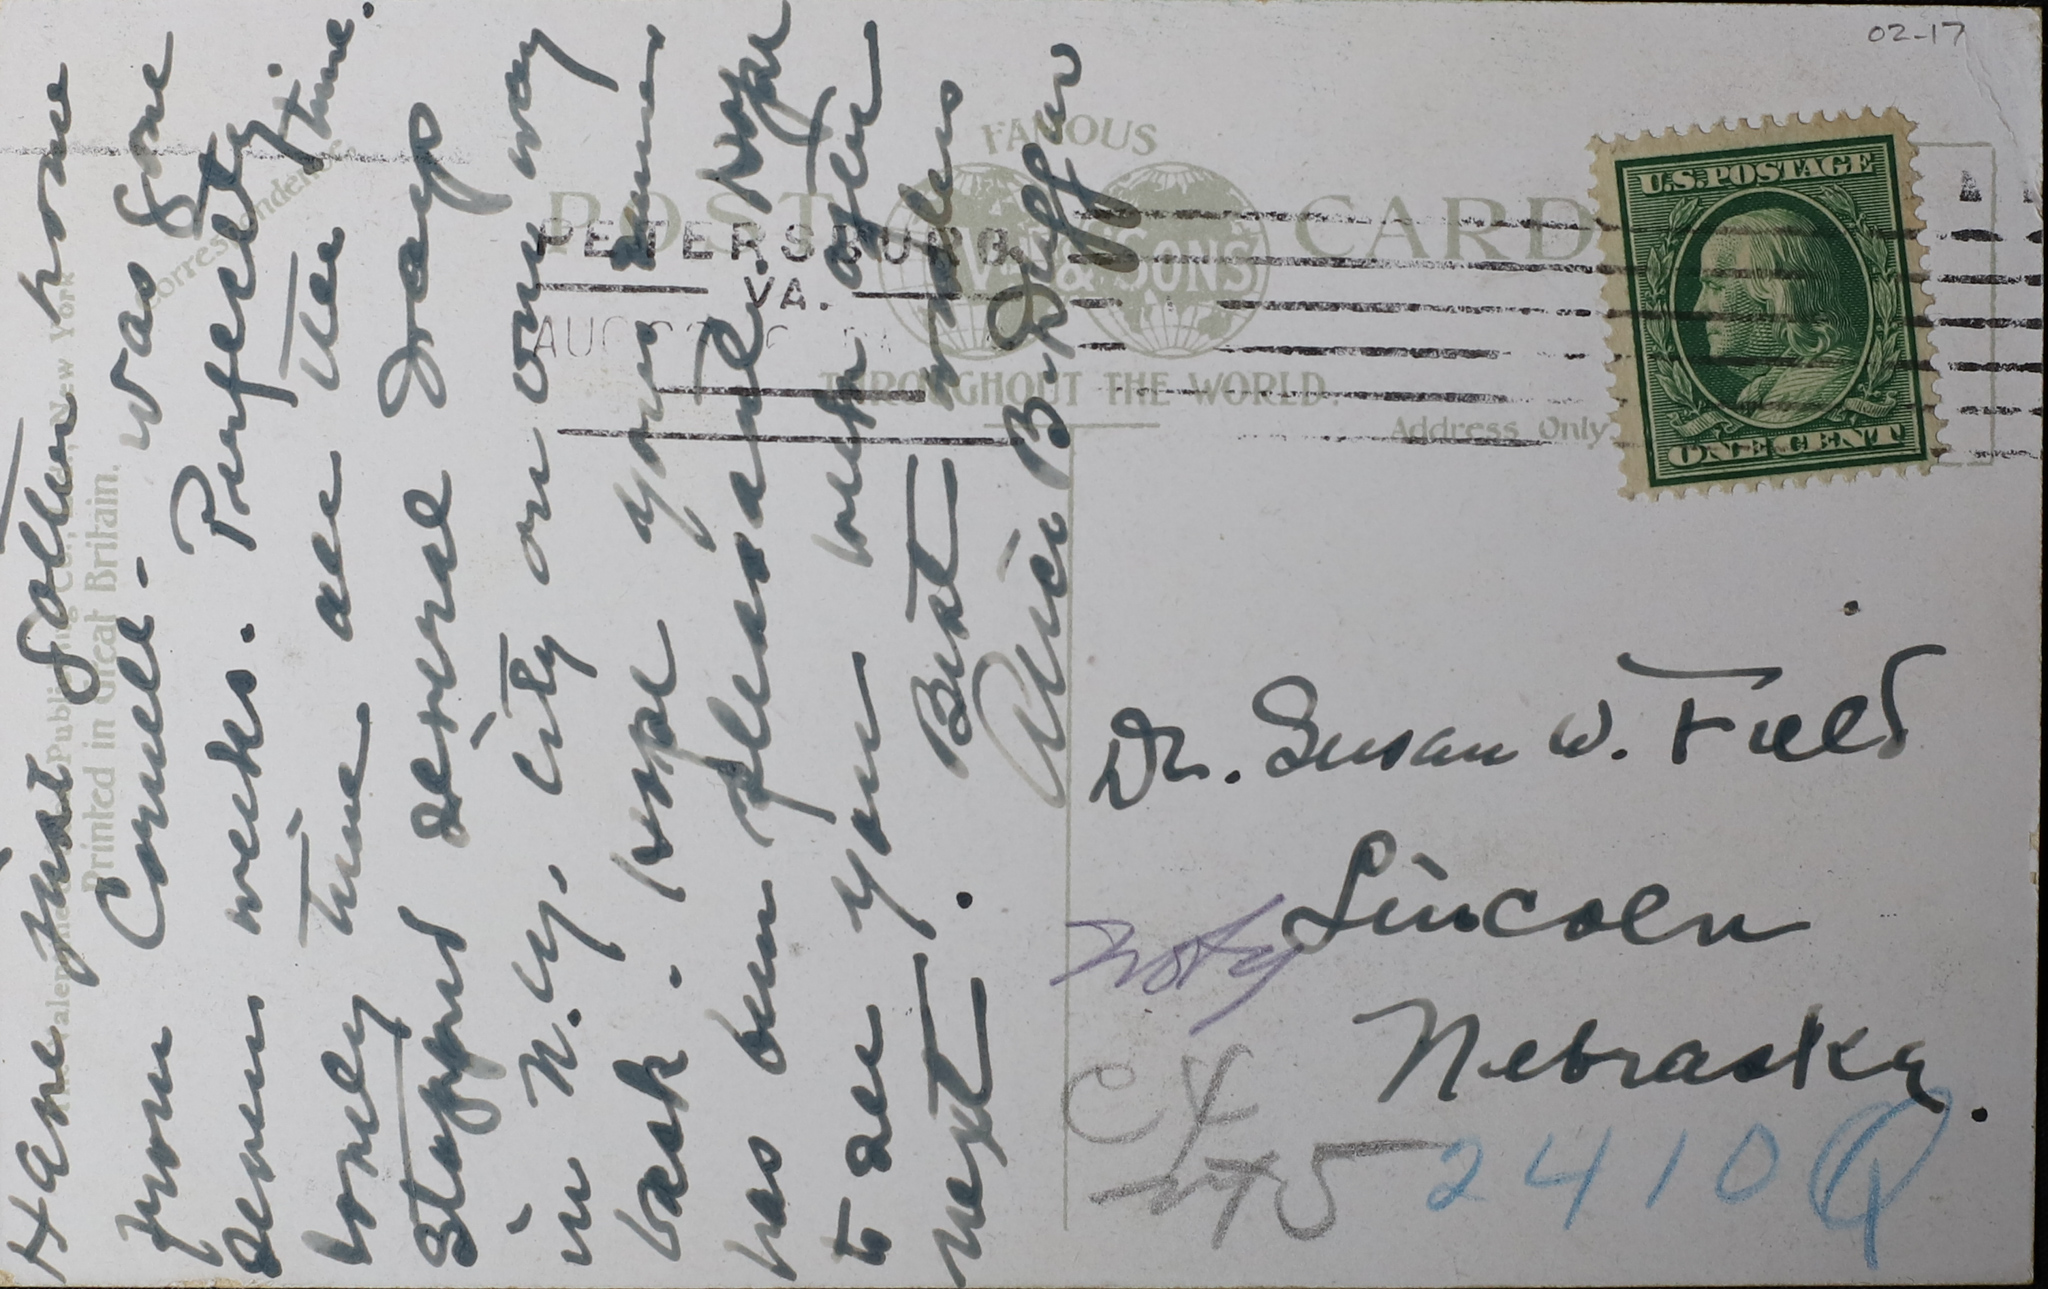 Have just gotten home
from Cornell - was gone
seven weeks. Perfectly
lovely time all the time.
Stopped several days
in N.Y. City on our way
back. Hope your summer
has been pleasant. Hope
to see you week after
next. Best wishes.
Alice B.
02-17
FAMOUS
POST CARD
& SONS
THROUGHOUT THE WORLD.
Address Only
PETERSBURG
VA.
AUG
U.S. POSTAGE
ONE CENT
Correspondence.
Publishing Co., Ltd., New York
Printed in Great Britain.
Dr. Susan W. Field
Lincoln
Nebraska.
2410